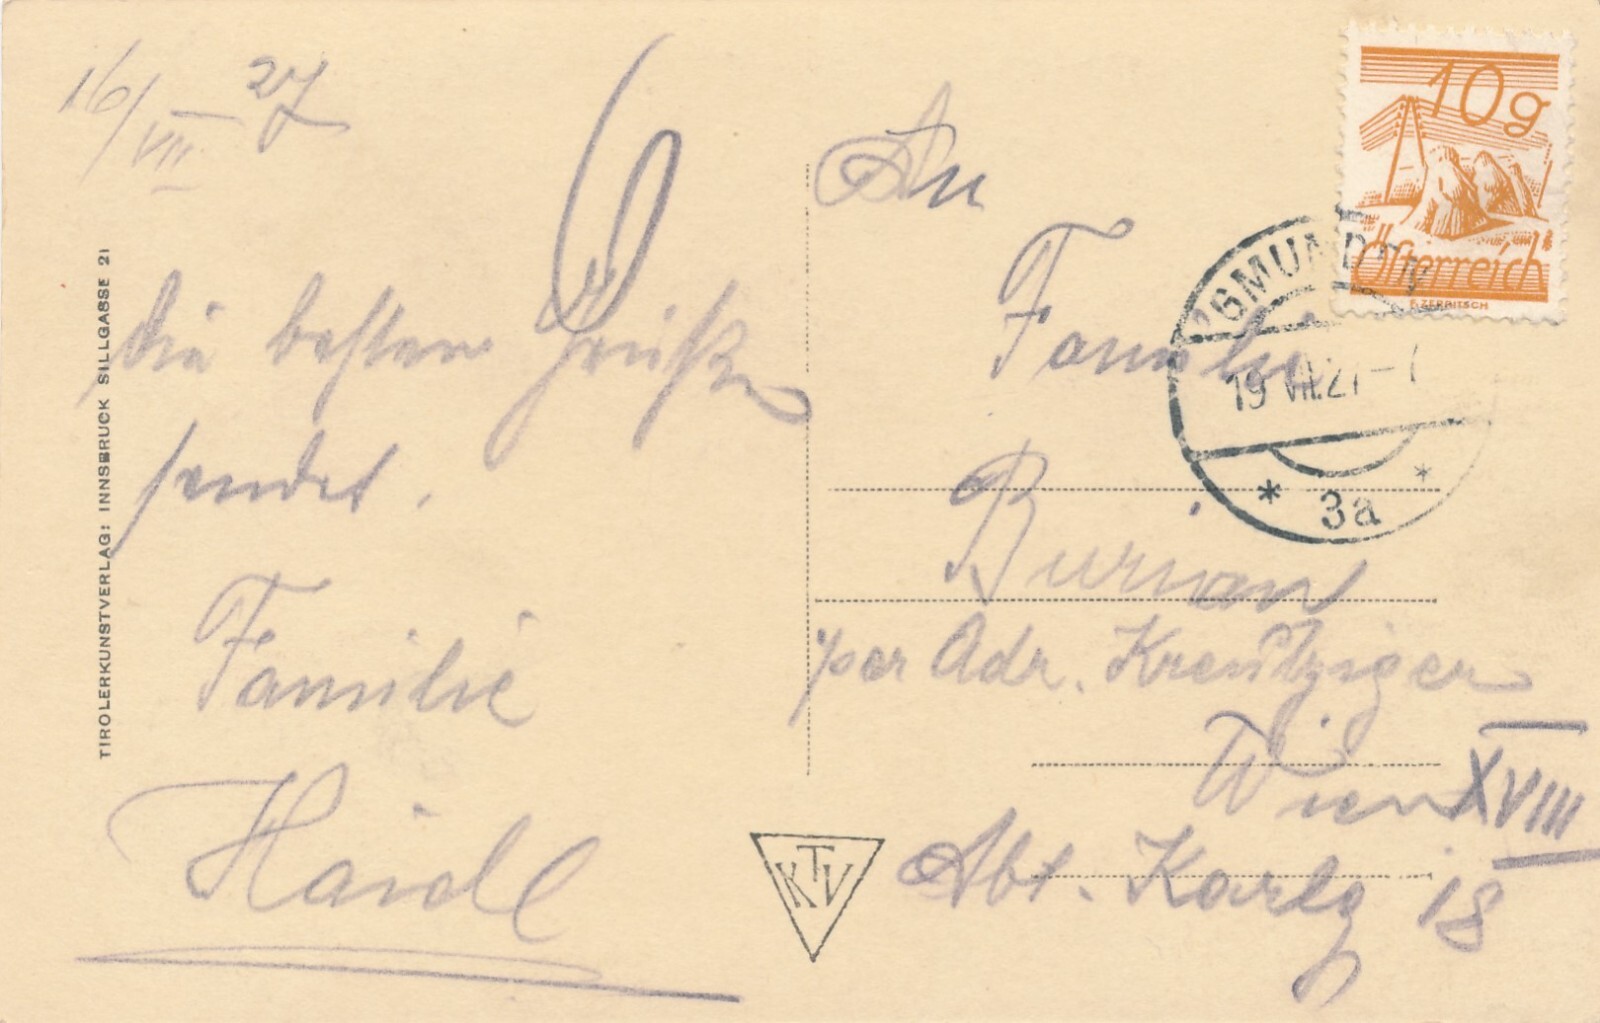 16/VII 27
Die besten Grüße
sendet.
Familie
Haidl
TIROLERKUNSTVERLAG: INNSBRUCK SILLGASSE 21
KTV
10g
Österreich
GMUNDEN
19.VII.27
* 3a *
An
Familie
Burian
per Adr. Kreutziger
Wien XVIII
Abt. Karlg 18